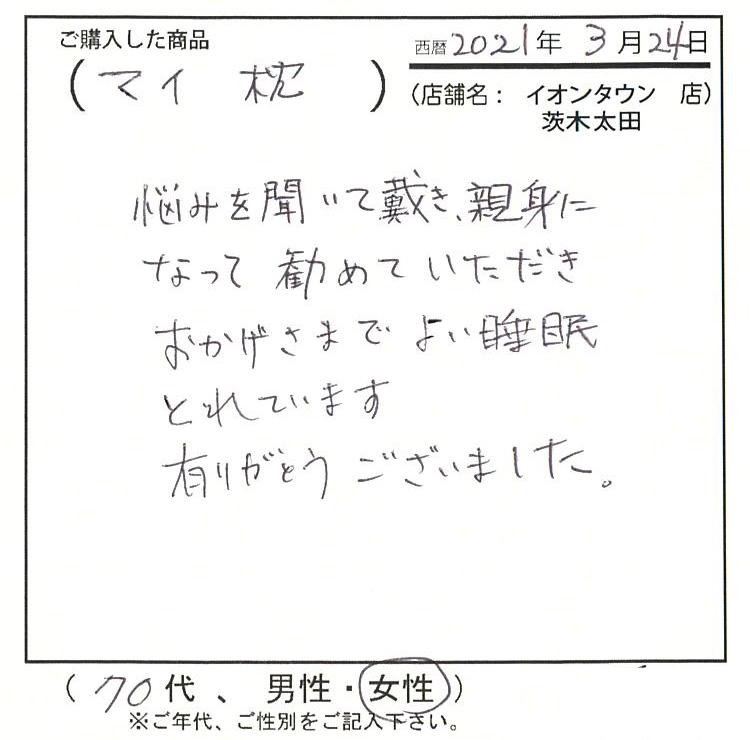 ご購入した商品
(マイ 枕)
西暦2021年 3月24日
(店舗名: イオンタウン 店)
茨木太田
悩みを聞いて戴き、親身に
なって 勧めていただき
おかげさまで よい睡眠
とれています
有りがとうございました。
(70代、男性・女性)
※ご年代、ご性別をご記入下さい。